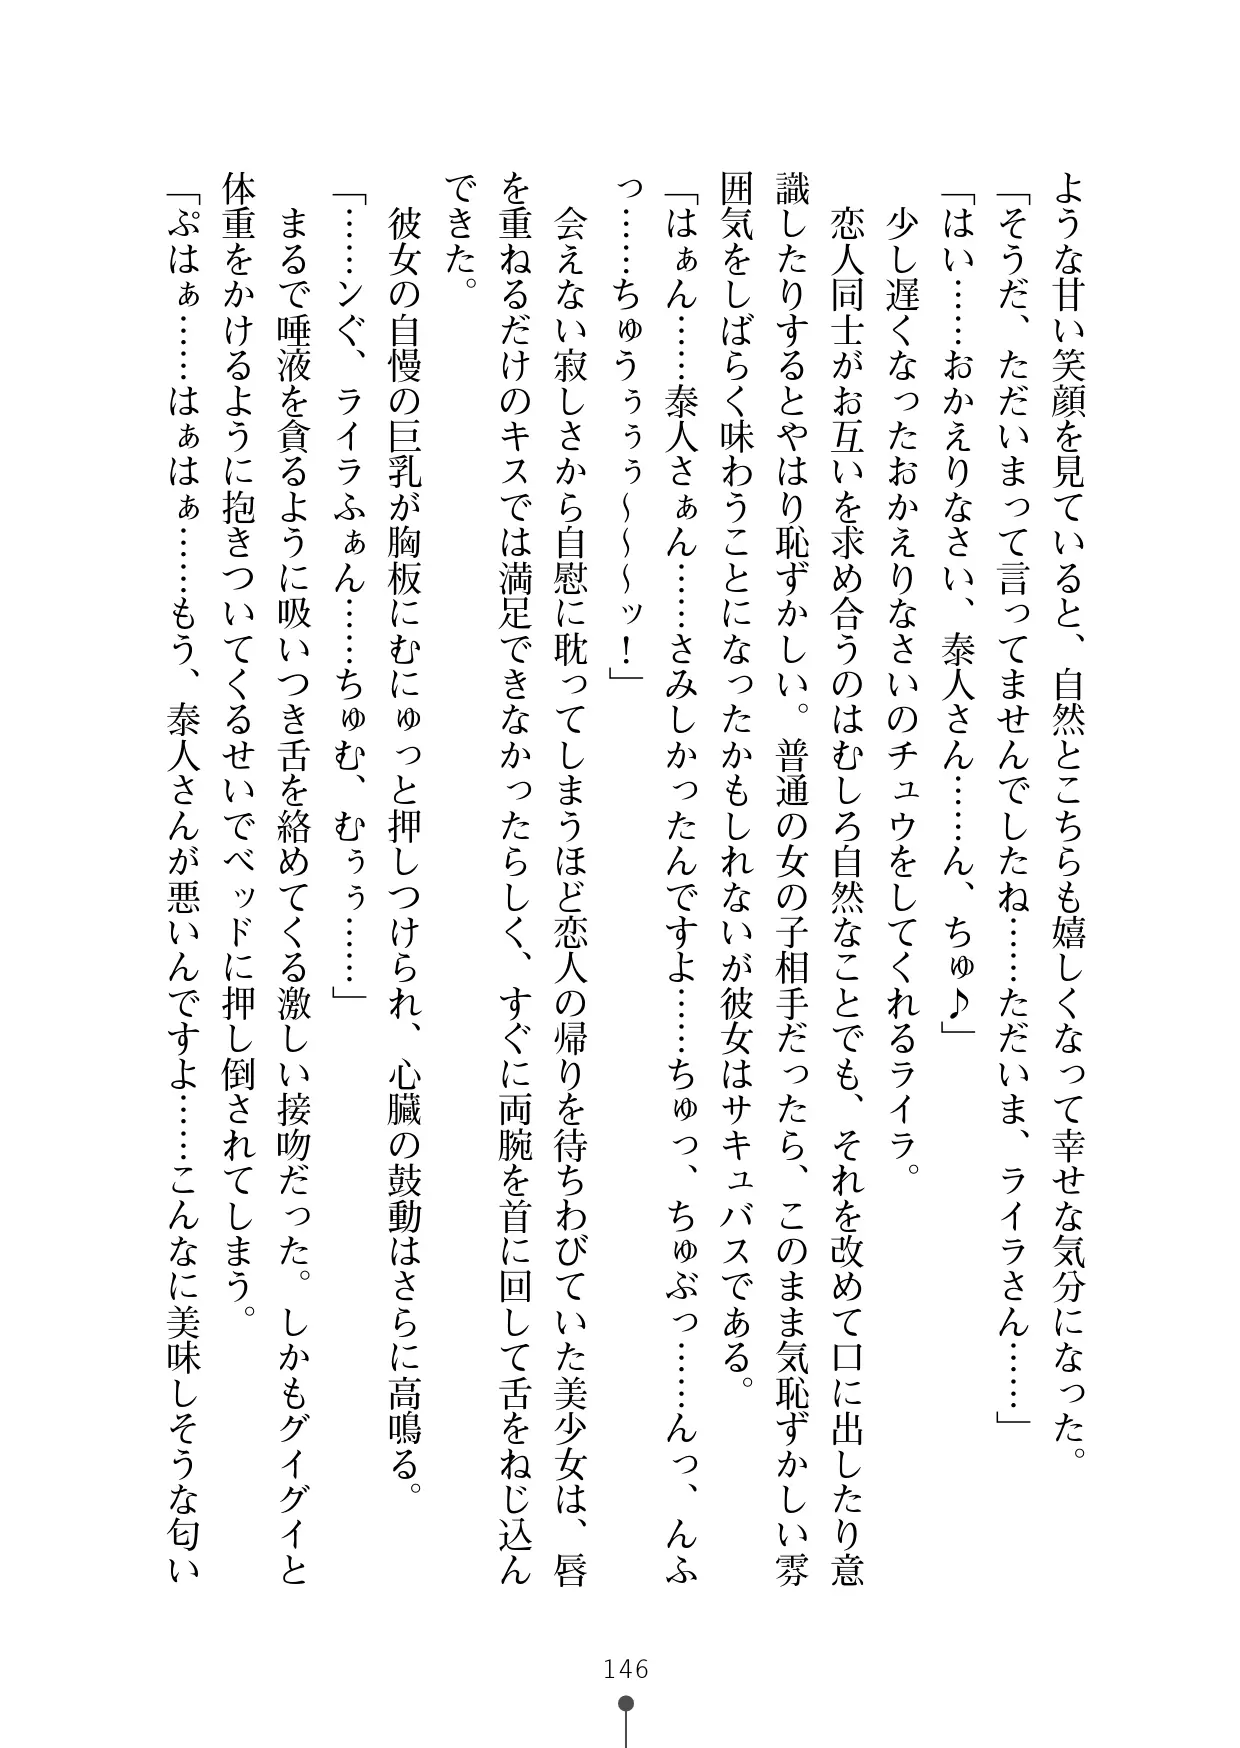 ような甘い笑顔を見ていると、自然とこちらも嬉しくなって幸せな気分になった。
「そうだ、ただいまって言ってませんでしたね……ただいま、ライラさん……」
「はい……おかえりなさい、泰人さん……ん、ちゅ♪」
少し遅くなったおかえりなさいのチュウをしてくれるライラ。
恋人同士がお互いを求め合うのはむしろ自然なことでも、それを改めて口に出したり意
識したりするとやはり恥ずかしい。普通の女の子相手だったら、このまま気恥ずかしい雰
囲気をしばらく味わうことになったかもしれないが彼女はサキュバスである。
「はぁん……泰人さぁん……さみしかったんですよ……ちゅっ、ちゅぶっ……んっ、んふ
っ……ちゅうぅぅぅ～～～ッ！」
会えない寂しさから自慰に耽ってしまうほど恋人の帰りを待ちわびていた美少女は、唇
を重ねるだけのキスでは満足できなかったらしく、すぐに両腕を首に回して舌をねじ込ん
できた。
彼女の自慢の巨乳が胸板にむにゅっと押しつけられ、心臓の鼓動はさらに高鳴る。
「……ンぐ、ライラふぁん……ちゅむ、むぅぅ……」
まるで唾液を貪るように吸いつき舌を絡めてくる激しい接吻だった。しかもグイグイと
体重をかけるように抱きついてくるせいでベッドに押し倒されてしまう。
「ぷはぁ……はぁはぁ……もう、泰人さんが悪いんですよ……こんなに美味しそうな匂い
146